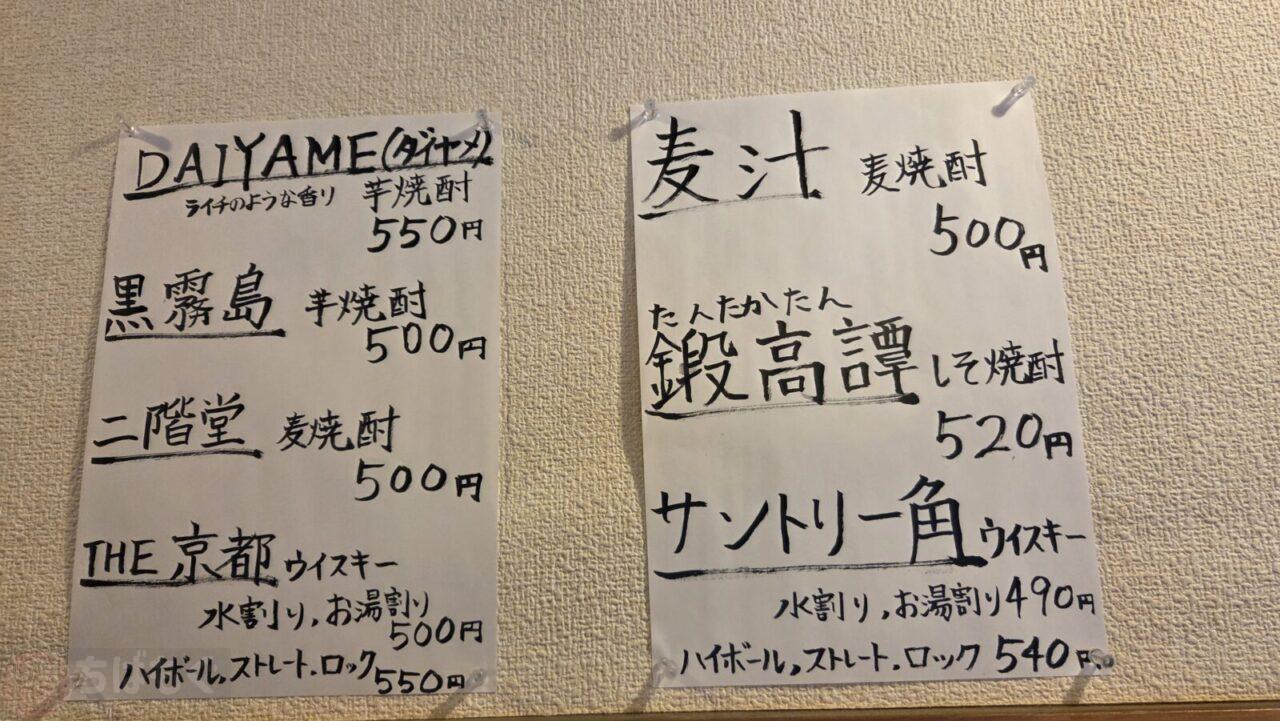 DAIYAME(ダイヤメ)
ライチのような香り 芋焼酎
550円
黒霧島 芋焼酎
500円
二階堂 麦焼酎
500円
THE 京都 ウイスキー
水割り,お湯割り
500円
ハイボール,ストレート.ロック
550円
麦汁 麦焼酎
500円
たんたかたん
鍛高譚 しそ焼酎
520円
サントリー角 ウイスキー
水割り,お湯割り490円
ハイボール,ストレート.ロック 540円